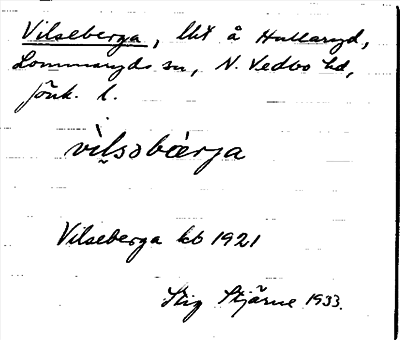 Vilseberga, lht å Hullaryd,
Lommaryds sn, N. Vedbo hd,
Jönk. l.
vìlsəbærja
Vilseberga kb 1921
Stig Stjärne 1933.